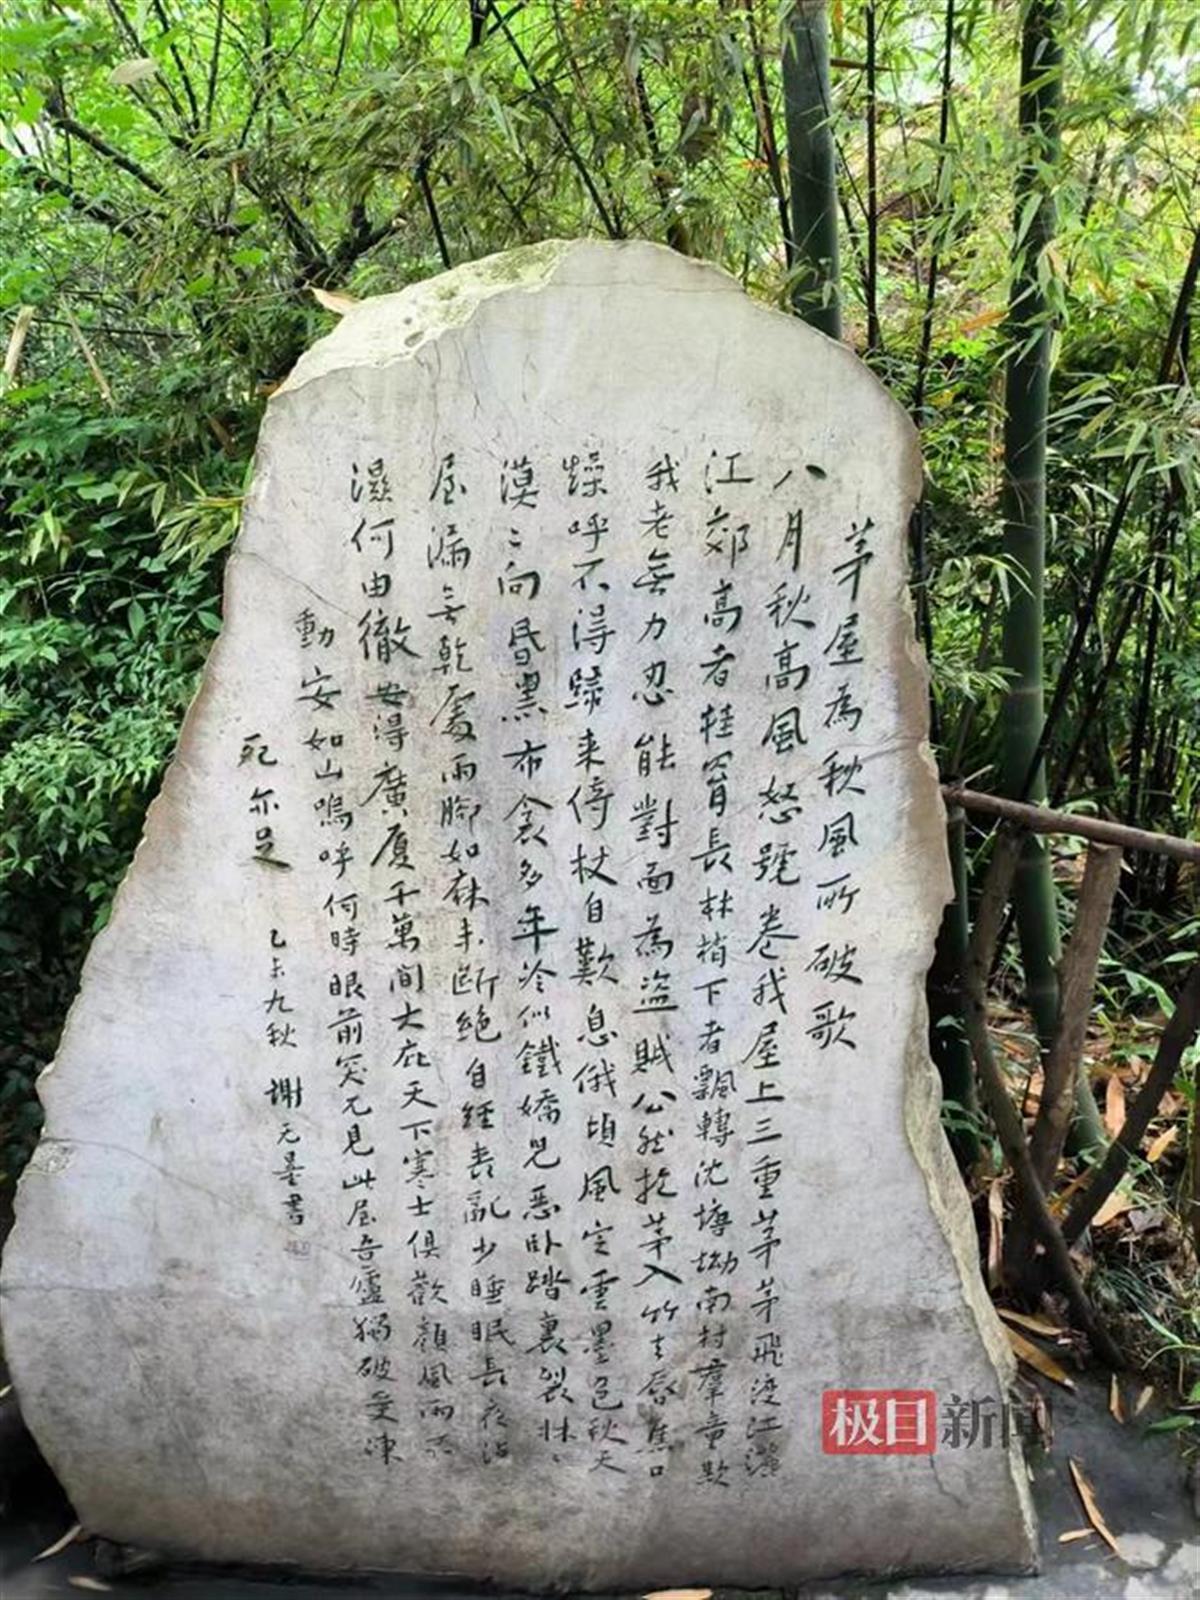 茅屋為秋風所破歌
八月秋高風怒號卷我屋上三重茅茅飛渡江灑
江郊高者挂罥長林梢下者飄轉沈塘坳南村羣童欺
我老無力忍能對面為盜賊公然抱茅入竹去唇焦口
燥呼不得歸来倚杖自歎息俄頃風定雲墨色秋天
漠〻向昏黑布衾多年冷似鐵嬌兒惡卧踏裏裂牀〻
屋漏无乾處雨腳如麻未斷絕自經喪亂少睡眠長夜沾
濕何由徹安得廣厦千萬間大庇天下寒士俱歡顏風雨不
動安如山嗚呼何時眼前突兀見此屋吾廬獨破受凍
死亦足
乙未九秋 謝无量書
极目新闻